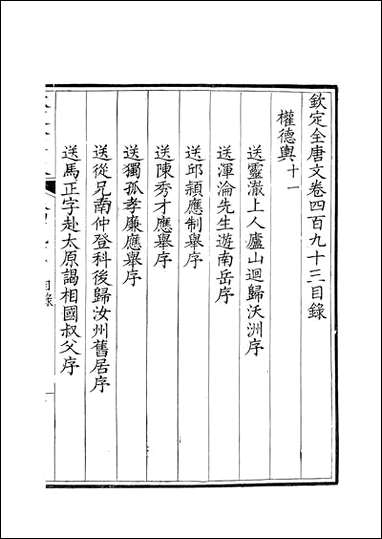 欽定全唐文卷四百九十三目錄
權德輿 十一
送靈澈上人廬山迴歸沃洲序
送渾淪先生遊南岳序
送邱穎應制舉序
送陳秀才應舉序
送獨孤孝廉應舉序
送從兄南仲登科後歸汝州舊居序
送馬正字赴太原謁相國叔父序
目錄